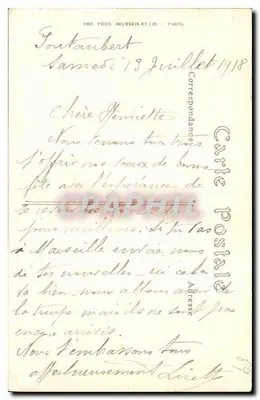 IMP. PHOT. NEURDEIN ET CIE. — PARIS.
Fontaubert
Samedi 13 Juillet 1918
Chère Henriette
Nous venons tous trois
t'offrir nos vœux de bonne
fête avec l'espérance de
se
jours meilleurs. Si tu vas
à Marseille envoie nous
de tes nouvelles - ici cela
va bien, nous allons avoir de
la troupe mais ils ne sont pas
encore arrivés.
Nous t'embrassons tous
affectueusement
Correspondance
Carte Postale
Adresse
CPAPHIL